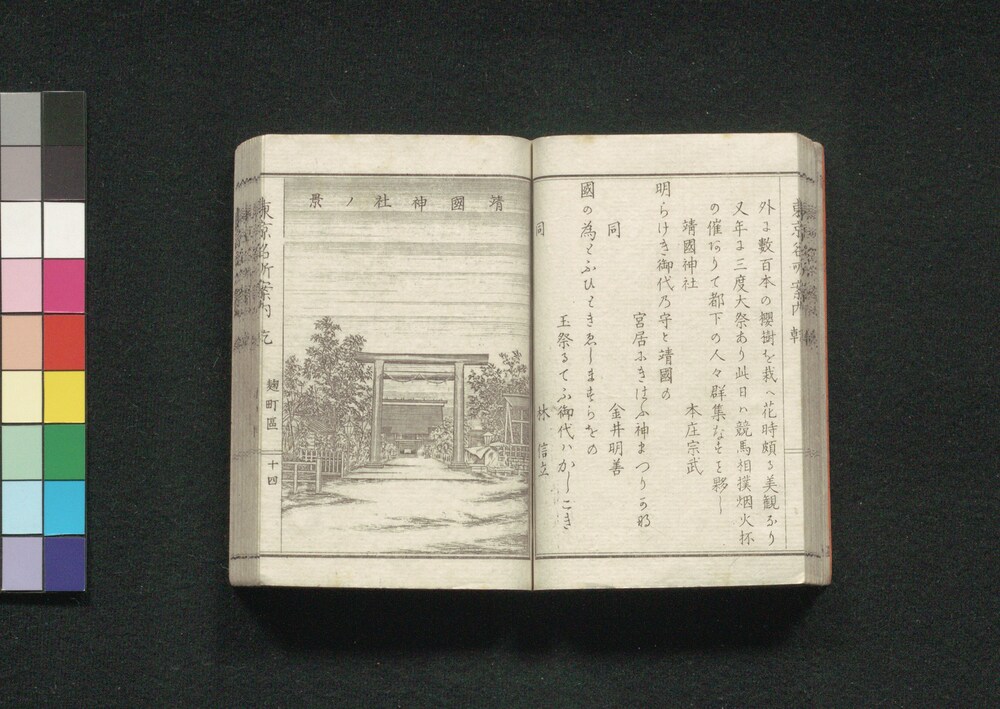 外ニ數百本の櫻樹を栽へ花時頗る美観なり
又年ニ三度大祭あり此日ハ競馬相撲烟火抔
の催ありて都下の人々群集なすを夥し
靖國神社 本庄宗武
明らけき御代乃守と靖國の
宮居ふきはらふ神まつりかな
同 金井明善
國の為とふひときゑしますらをの
玉祭るてふ御代ハかしこき
同 林信立
靖國神社ノ景
東京名所案内
麹町區
十四